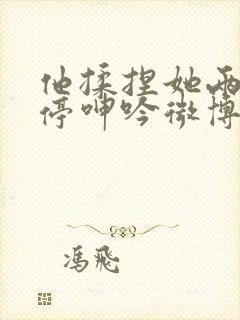 他揉捏她两
停呻吟微博
冯飞